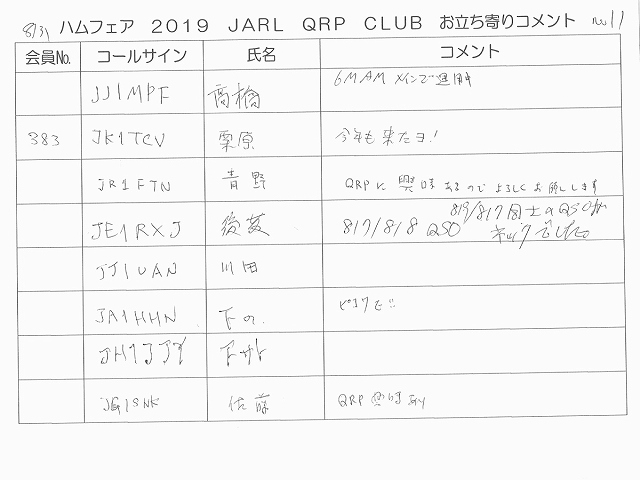 8/31 ハムフェア 2019 JARL QRP CLUB お立ち寄りコメント no 11
会員No. コールサイン 氏名 コメント
JJ1MPF 高橋 6MAM メインで運用中
383 JK1TCV 栗原 今年も来たヨ!
JR1FTN 青野 QRPに興味あるのでよろしくお願いします
819/817同士のQSOが
JE1RXJ 後藤 817/818 QSO キックでした。
JJ1UAN 川田
JA1HHN 下の
JH1JJY
JG1SNK 佐藤 QRP 興味あり